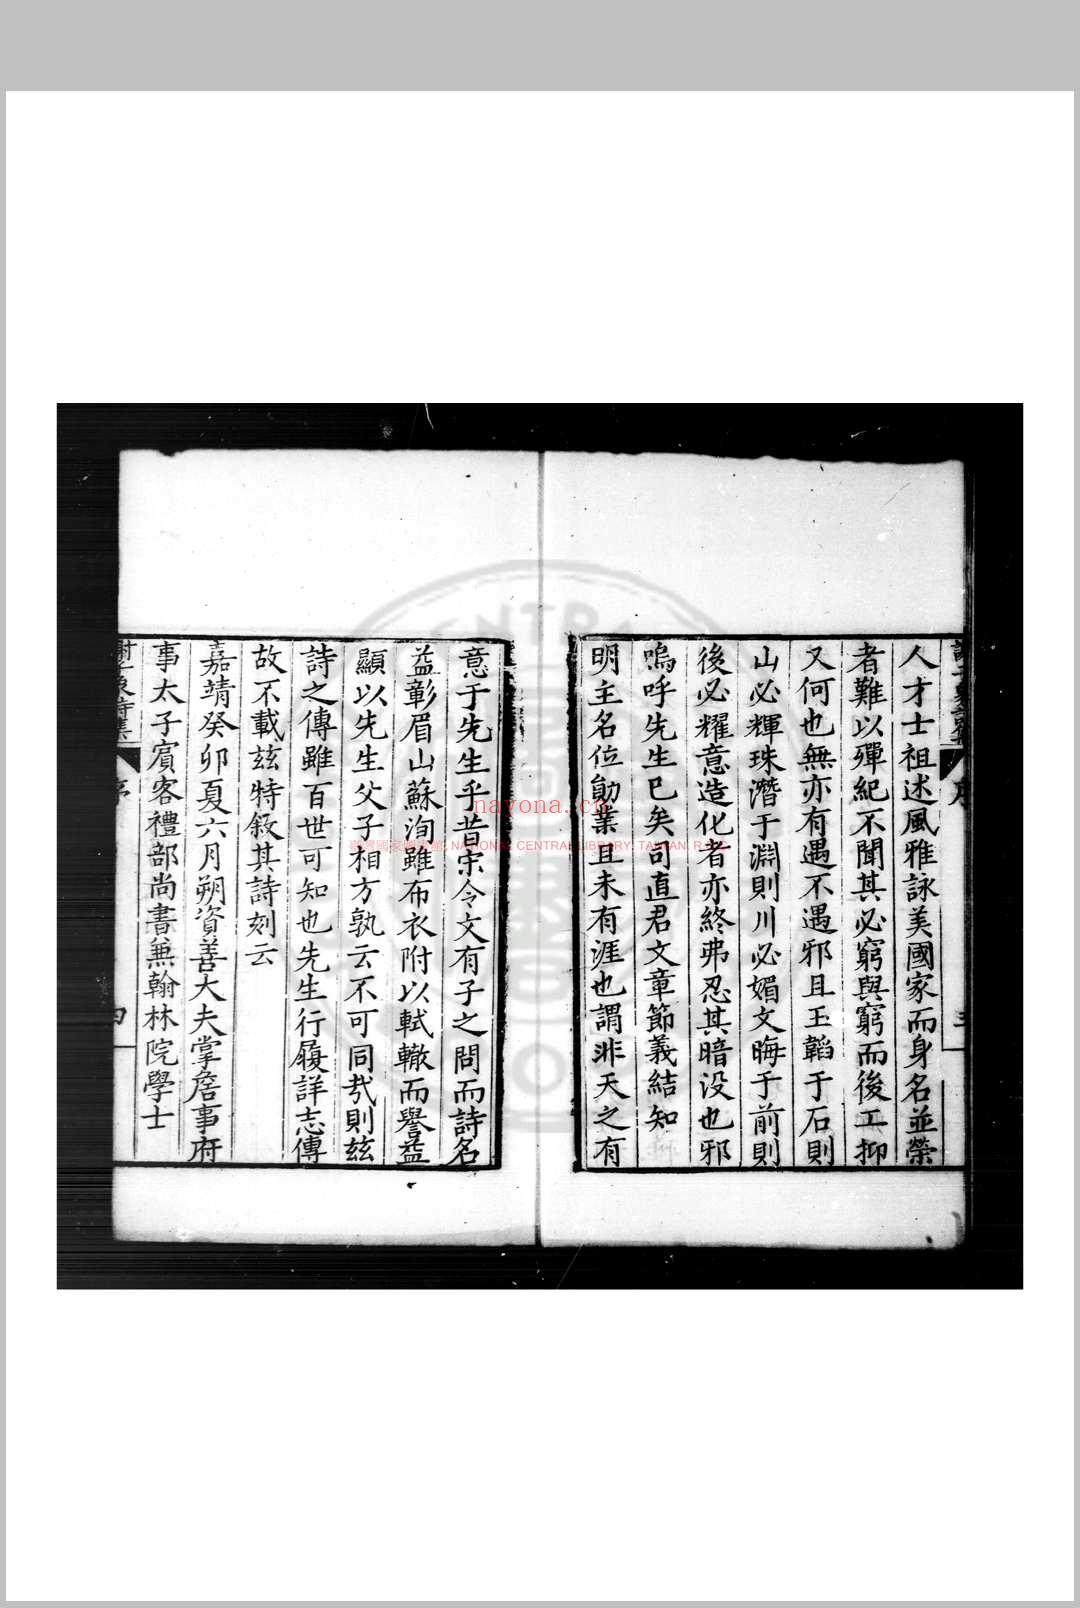 人才士祖述風雅詠美國家而身名並榮
者難以殫紀不聞其必窮與窮而後工抑
又何也無亦有遇不遇邪且玉韞于石則
山必輝珠潛于淵則川必媚文晦于前則
後必耀意造化者亦終弗忍其暗没也邪
嗚呼先生已矣司直君文章節義結知
明主名位勛業且未有涯也謂非天之有
意于先生乎昔宋令文有子之問而詩名
益彰眉山蘇洵雖布衣附以軾轍而譽益
顯以先生父子相方孰云不可同㢤則兹
詩之傳雖百世可知也先生行履詳志傳
故不載兹特敘其詩刻云
嘉靖癸卯夏六月朔資善大夫掌詹事府
事太子賓客禮部尚書兼翰林院學士
序
四
nayona.cn
NATIONAL CENTRAL LIBRARY, TAIWAN, R.O.C.